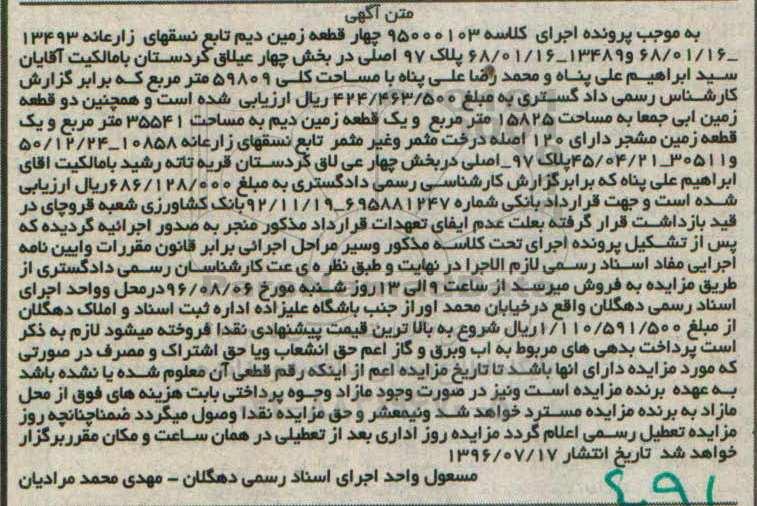 متن آگهی
به موجب پرونده اجرای کلاسه ۹۵۰۰۰۱۰۳ چهار قطعه زمین دیم تابع نسقهای زارعانه ۱۳۴۹۳
_۶۸/۰۱/۱۶ و۱۳۴۸۹_۶۸/۰۱/۱۶ پلاک ۹۷ اصلی در بخش چهار عیلاق کردستان بامالکیت آقایان
سید ابراهیم علی پناه و محمد رضا علی پناه با مساحت کلی ۵۹۸۰۹ متر مربع که برابر گزارش
کارشناس رسمی داد گستری به مبلغ ۴۲۴/۴۶۳/۵۰۰ ریال ارزیابی شده است و همچنین دو قطعه
زمین ابی جمعا به مساحت ۱۵۸۲۵ متر مربع و یک قطعه زمین دیم به مساحت ۳۵۵۴۱ متر مربع و یک
قطعه زمین مشجر دارای ۱۲۰ اصله درخت مثمر وغیر مثمر تابع نسقهای زارعانه ۱۰۸۵۸_۵۰/۱۲/۲۴
و۳۰۵۱۱_۴۵/۰۴/۲۱پلاک ۹۷_اصلی دربخش چهار عی لاق کردستان قریه تاته رشید بامالکیت اقای
ابراهیم علی پناه که برابرگزارش کارشناسی رسمی دادگستری به مبلغ ۶۸۶/۱۲۸/۰۰۰ریال ارزیابی
شده است و جهت قرارداد بانکی شماره ۶۹۵۸۸۱۲۴۷_۹۲/۱۱/۱۹بانک کشاورزی شعبه قروچای در
قید بازداشت قرار گرفته بعلت عدم ایفای تعهدات قرارداد مذکور منجر به صدور اجرائیه گردیده که
پس از تشکیل پرونده اجرای تحت کلاسه مذکور وسیر مراحل اجرائی برابر قانون مقررات وایین نامه
اجرایی مفاد اسناد رسمی لازم الاجرا در نهایت و طبق نظره ی عت کارشناسان رسمی دادگستری از
طریق مزایده به فروش میرسد از ساعت ۹ الی ۱۳ روز شنبه مورخ ۹۶/۰۸/۰۶درمحل وواحد اجرای
اسناد رسمی دهگلان واقع درخیابان محمد اوراز جنب باشگاه علیزاده اداره ثبت اسناد و املاک دهگلان
از مبلغ ۱/۱۱۰/۵۹۱/۵۰۰ریال شروع به بالا ترین قیمت پیشنهادی نقدا فروخته میشود لازم به ذکر
است پرداخت بدهی های مربوط به اب وبرق و گاز اعم حق انشعاب ویا حق اشتراک و مصرف در صورتی
که مورد مزایده دارای انها باشد تا تاریخ مزایده اعم از اینکه رقم قطعی آن معلوم شده یا نشده باشد
به عهده برنده مزایده است ونیز در صورت وجود مازاد وجوه پرداختی بابت هزینه های فوق از محل
مازاد به برنده مزایده مسترد خواهد شد ونیمعشر و حق مزایده نقدا وصول میگردد ضمناچنانچه روز
مزایده تعطیل رسمی اعلام گردد مزایده روز اداری بعد از تعطیلی در همان ساعت و مکان مقرربرگزار
خواهد شد تاریخ انتشار ۱۳۹۶/۰۷/۱۷
مسعول واحد اجرای اسناد رسمی دهگلان - مهدی محمد مرادیان